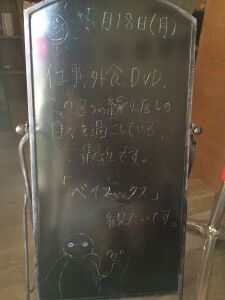 5月18日(月)
仕事、外食、DVD、
この3つの繰り返しの
日々を過ごしている、
ご最近です。
「ベイマックス」
観たいです。